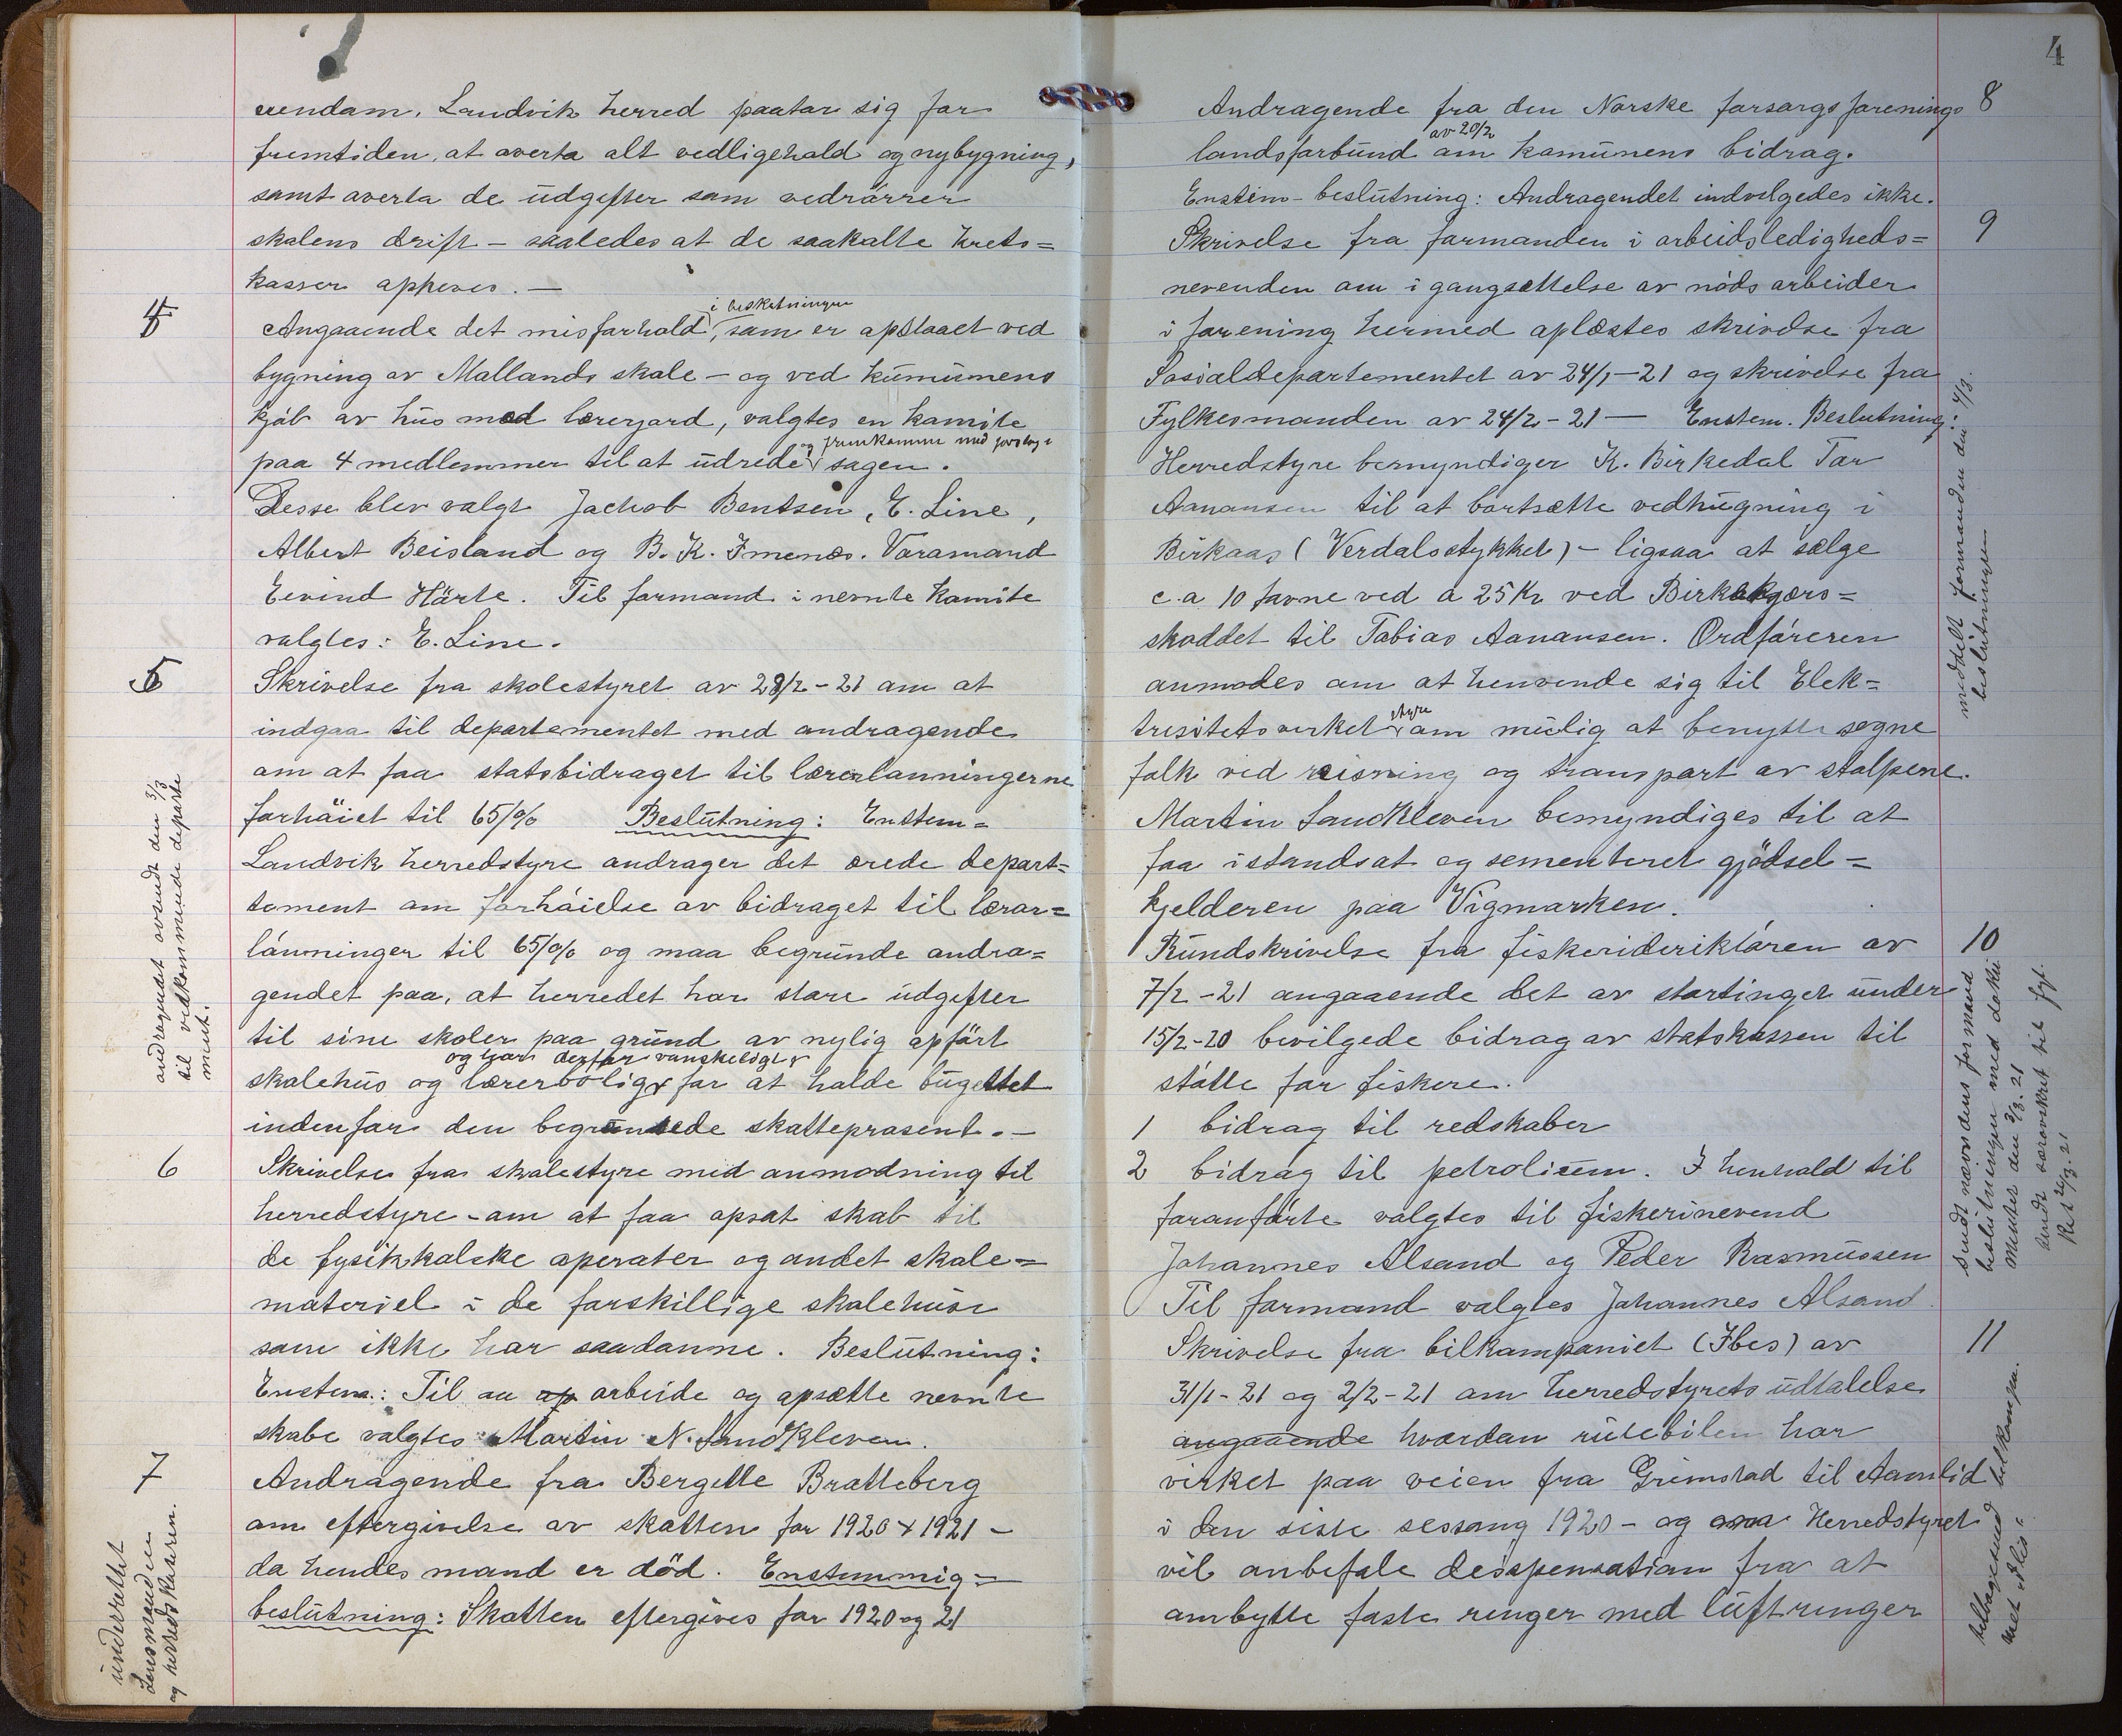 eiendam. Landvik herred paatar sig for
fremtiden, at overta alt vedligehold og nybygning,
samt overta de udgifter som vedrörrer
skolens drift - saaledes at de saakalte krets=
kasser oppheves. —
4
i beskatningen
Angaaende det misforhold, som er opstaaet ved
bygning av Mallands skole - og ved kumunens
kjöb av hus med lærerjord, valgtes en komite
og fremkomme med forslag i
paa 4 medlemmer til at udrede sagen.
Desse blev valgt Jachob Bentsen, E. Line,
Albert Beisland og B. K. Imenes. Varamand
Eivind Hörte. Til formand i nevnte komite
valgtes: E. Line.
5
Skrivelse fra skolestyret av 28/2-21 om at
indgaa til departementet med andragende
om at faa statsbidraget til lærerlønningerne
forhöiet til 65/% Beslutning: Enstem=
Landvik herredstyre andrager det ærede depart=
tement om forhöielse av bidraget til lærar=
lönninger til 65/% og maa begrunde andra=
gendet paa, at herredet har store udgifter
til sine skoler paa grund av nylig opfört
og har derfor vanskeligt
skolehus og lærerbolig for at holde bugettet
indenfor den begrensede skatteprosent. —
andragendet avsendt den 3/3
til vedkommende departe
ment.
6
Skrivelse fra skolestyre med anmodning til
herredstyre - om at faa opsat skab til
de fysikkalske aperater og andet skole=
materiel i de forskillige skolehuse
som ikke har saadanne. Beslutning:
Enstem.: Til aa op arbeide og opsætte nevnte
skabe valgtes Martin N. Sandkleven.
7
Andragende fra Bergitte Bratteberg
om eftergivelse av skatten for 1920 + 1921 -
da hendes mand er död. Enstemmig=
beslutning: Skatten eftergives for 1920 og 21
underrettet
Lensmanden
og herredskasseren.
4
8
Andragende fra den Norske forsorgsforenings
av 20/2
landsforbund om komunens bidrag.
Enstem- beslutning: Andragendet indvelgedes ikke.
9
Skrivelse fra formanden i arbeidsledigheds=
nevenden om igangsættelse av nöds arbeider
i forening hermed oplæstes skrivelse fra
Sosialdepartementet av 24/1-21 og skrivelse fra
Fylkesmanden av 24/2-21 — Enstem. Beslutning:
Herredstyre bemyndiger K. Birkedal Tor
Aanonsen til at bortsætte vedhugning i
Birkaas (Verdalsstykket) - ligsaa at sælge
c.a 10 favne ved a 25 Kr ved Birkekjærs=
skoddet til Tobias Aanonsen. Ordföreren
anmodes om at henvende sig til Elek=
styre
trisitetsverket om mulig at benytte sogne
folk ved reisning og transport av stolpene.
Martin Sandkleven bemyndiges til at
faa istandsat og sementeret gjödsel=
kjelderen paa Vigmarken.
meddelt formanden den 4/3.
beslutningen
10
Rundskrivelse fra fiskerideriktören av
7/2-21 angaaende det av stortinget under
15/2-20 bevilgede bidrag av statskassen til
stötte for fiskere.
1 bidrag til redskaber
2 bidrag til petrolium. I henhold til
foranförte valgtes til fiskerinevend
Johannes Alsand og Peder Rasmussen
Til formand valgtes Johannes Alsand
sendt nævndens formand
beslutningen med doku
menter den 3/3. 21
sendt særutskrift til fyl.
11
Skrivelse fra bilkompaniet (Ibes) av
31/1-21 og 2/2-21 om herredstyrets udtalelse
angaaende hvordan rutebilen har
virket paa veien fra Grimstad til Aamlid
i den siste sessong 1920 - og om Herredstyret
vil anbefale desispensation fra at
ombytte faste ringer med luftringer
tilbagesend bilkompan.